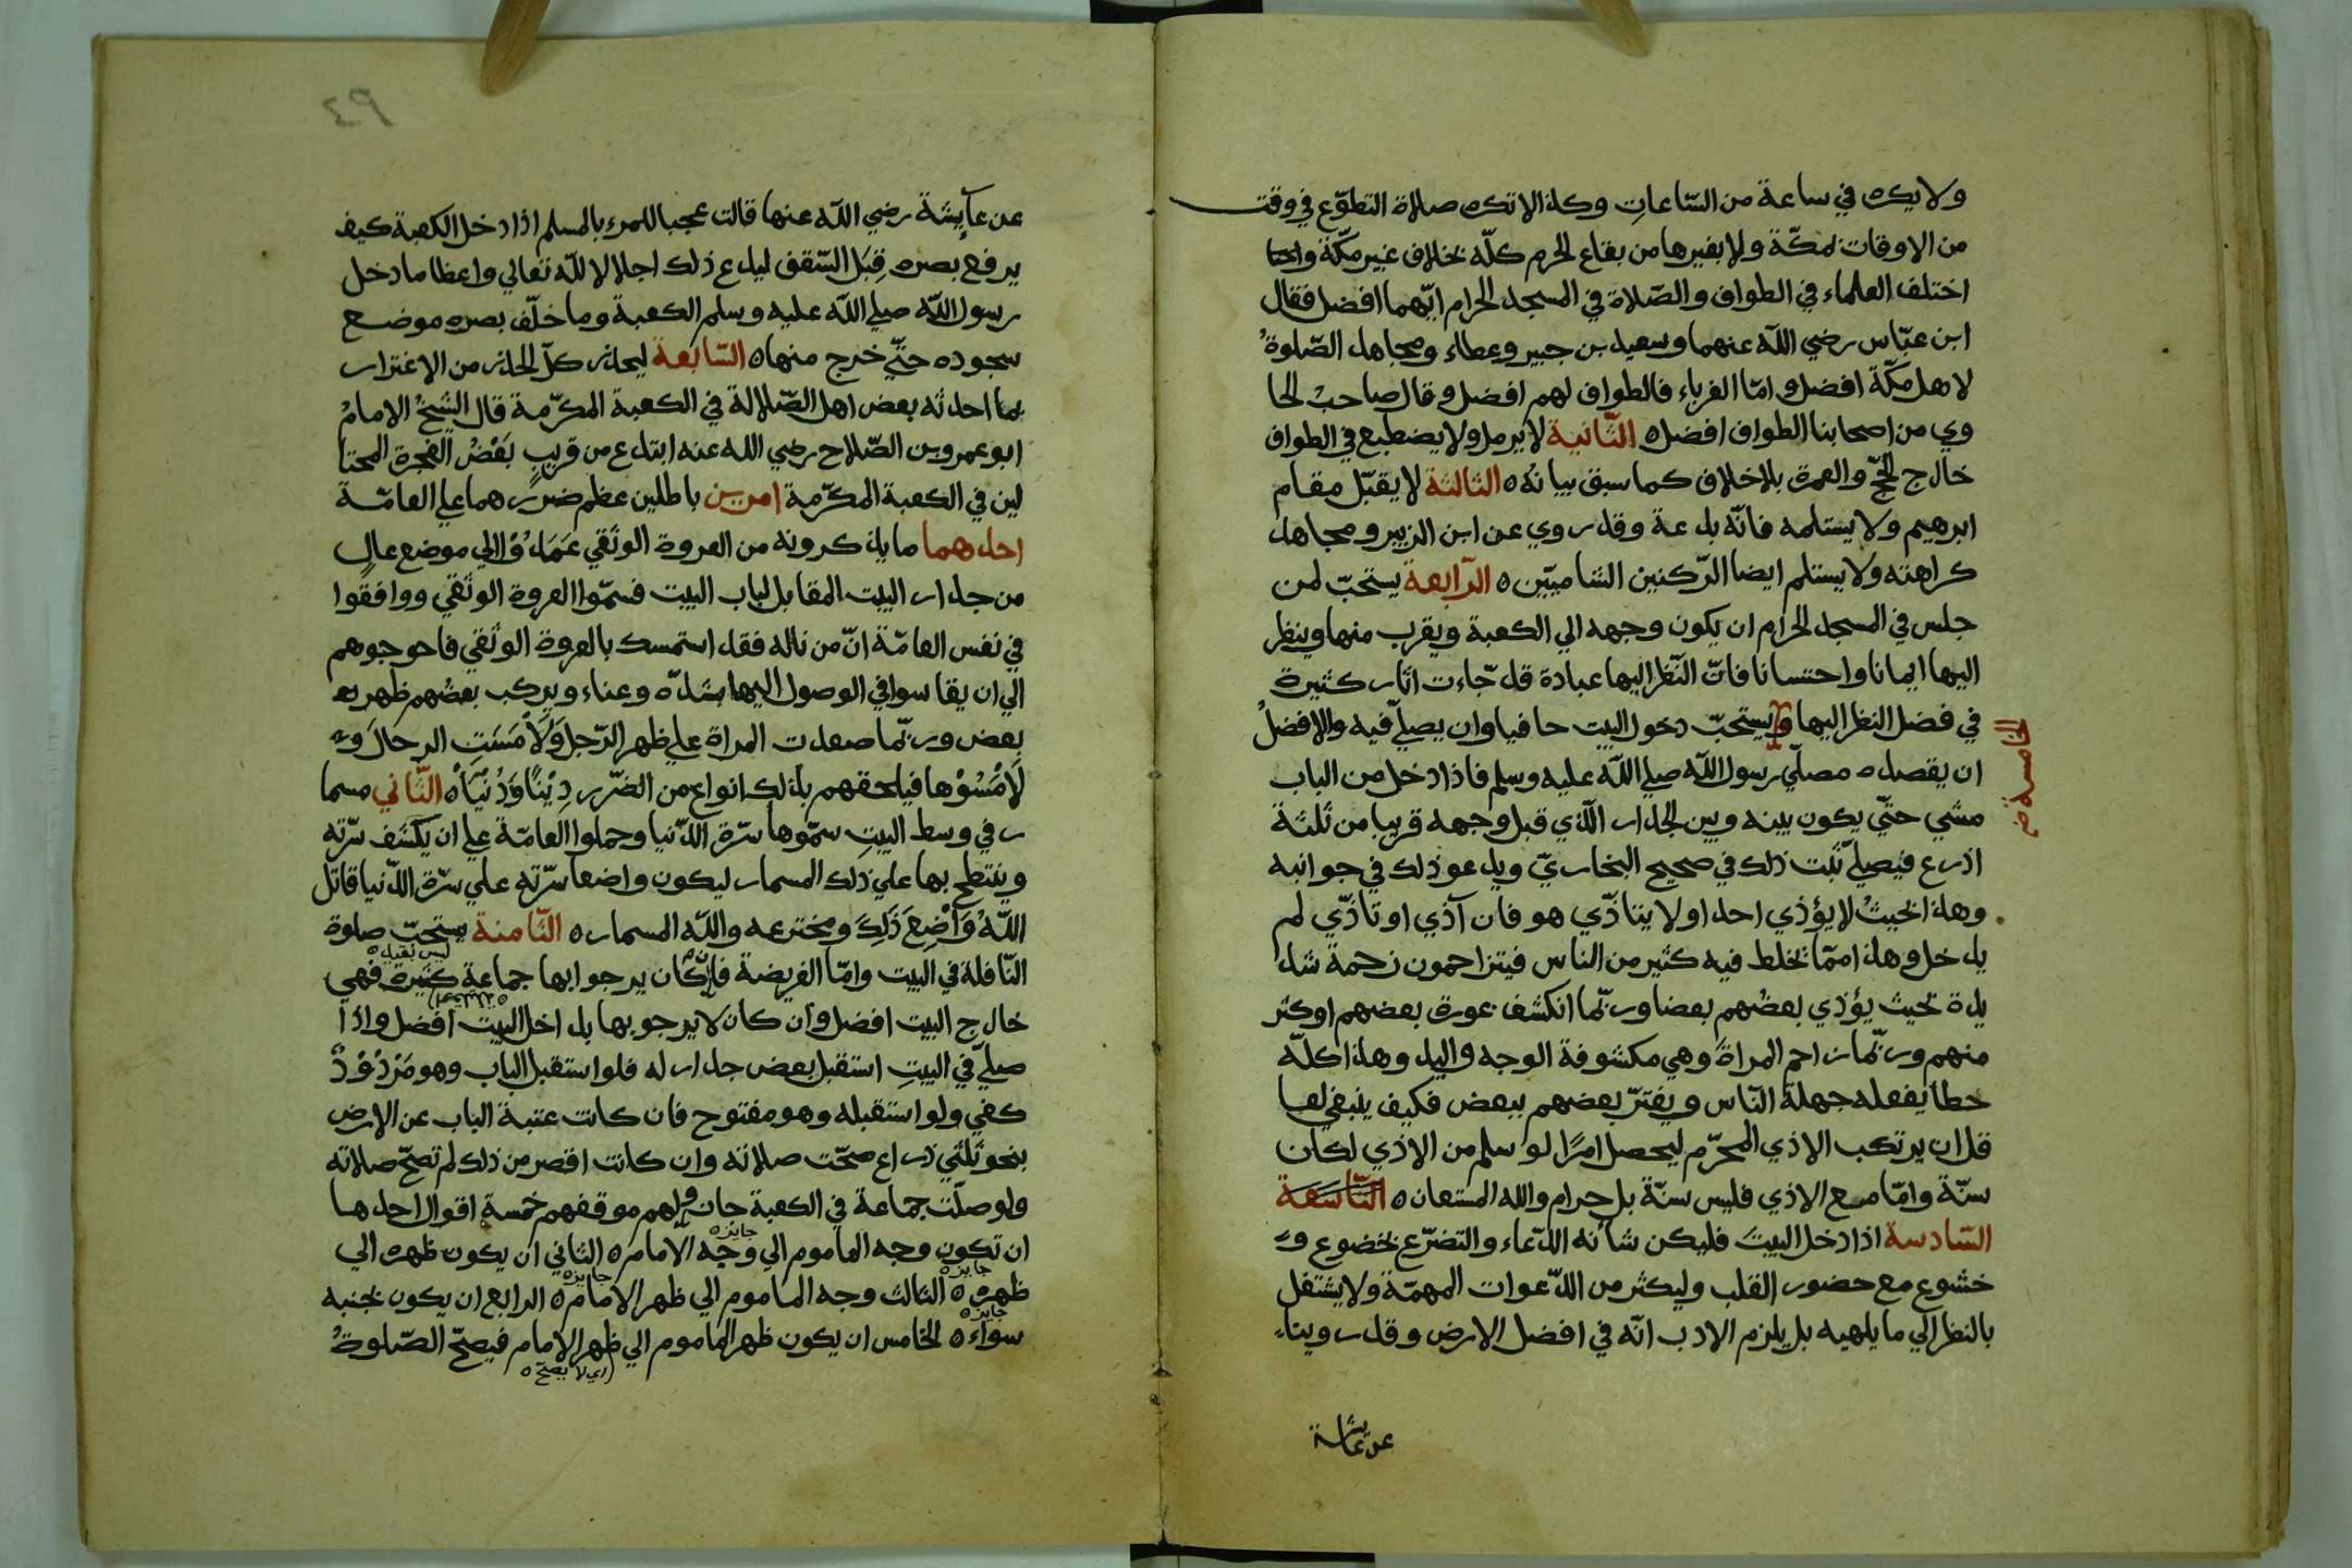 ولا يكره في ساعة من الساعات وكذا لا تكره صلاة التطوّع في وقت
من الاوقات بمكّة ولا بغيرها من بقاع الحرم كلّه بخلاف غير مكّة
اختلف العلماء في الطواف والصّلاة في المسجد الحرام ايّهما افضل فقال
ابن عبّاس رضي اللّه عنهما وسعيد بن جبير وعطاء ومجاهد الصّلوةُ
لاهل مكّة افضل وامّا الغرباء فالطواف لهم افضل وقال صاحب الحا
وي من اصحابنا الطواف افضل ه الثّانية لا يرمل ولا يضطبع في الطواف
خارج الحجّ والعمرة بلا خلاف كما سبق بيانُه ه الثالثة لا يقبّل مقام
ابرهيم ولا يستلمه فانّه بدعة وقد روي عن ابن الزبير ومجاهد
كراهته ولا يستلم ايضا الرّكنين الشاميّين ه الرّابعة يستحبّ لمن
جلس في المسجد الحرام ان يكون وجهه الي الكعبة ويقرب منها وينظر
اليها ايمانا واحتسانا فانّ النّظر اليها عبادة قد جاءت اثار كثيرة
في فضل النظر اليها ويستحبّ دخول البيت حافيا وان يصلّي فيه والافضلُ
الخامسة
ان يقصده مصلّي رسول اللّه صلي اللّه عليه وسلم فاذا دخل من الباب
مشي حتّي يكون بينه وبين الجدار الّذي قبل وجهه قريبا من ثلثة
اذرع فيصلّي ثبت ذلك في صحيح البخاريّ ويدعو ذلك في جوانبه
وهذا بحيثُ لا يؤذي احدا ولا يتاذّي هو فان آذي او تاذّي لم
يدخل وهذا ممّا يخلط فيه كثير من الناس فيتزاحمون زحمة شد
يدة بحيث يؤذي بعضُهم بعضا وربّما انكشف عورة بعضهم او كثر
منهم وربّما زاحم المراةَ وهي مكشوفة الوجه واليد وهذا كلّه
خطأ يفعله جهلة النّاس ويغترّ بعضهم ببعض فكيف ينبغي لعا
قل ان يرتكب الاذي المحرّم ليحصل امرًا لو سلم من الاذي لكان
سنّة وامّا مع الاذي فليس سنّة بل حرام والله المستعان ه التّاسعة
السّادسة اذا دخل البيتَ فليكن شانه الدّعاء والتضرّع بخضوع و
خشوع مع حضور القلب وليكثر من الدّعوات المهمّة ولا يشتغل
بالنظر الي ما يلهيه بل يلزم الادب انّه في افضل الارض وقد روينا
عن عائشة
٩٤
عن عآيشة رضي اللّه عنها قالت عجبا للمرء بالمسلم اذا دخل الكعبة كيف
يرفع بصره قِبَل السّقف ليدع ذلك اجلالا للّه تعالي واعظاما دخل
رسول اللّه صلي اللّه عليه وسلم الكعبة وما خلّف بصره موضع
سجوده حتّي خرج منها ه السّابعة ليحذر كلّ الحذر من الاغترار
بما احدثه بعض اهل الضّلالة في الكعبة المكرّمة قال الشّيخُ الامامُ
ابو عمرو بن الصّلاح رضي الله عنه ابتدع من قريبٍ بَعْضُ الفجرة المحتا
لين في الكعبة المكرّمة امرين باطلين عظم ضررُهما علي العامّة
احدهما ما يذكرونه من العروة الوثقي عَمَدُوْا الي موضع عالٍ
من جدار البيت المقابل لباب البيت فسمّوا العروة الوثقي ووافقُوا
في نفس العامّة انّ من ناله فقد استمسك بالعروة الوثقي فاحوجوهم
الي ان يقاسوا في الوصول اليها شدّه وعناء ويركب بعضُهم ظهر
بعض وربّما صعدت المراة علي ظهر الرّجل وَلَاْمَسَتِ الرحالَ و
لَاْمَسُوْها فيلحقهم بذلك انواع من الضّرر دِيْنًا وَدُنْيَاْ ه الثّاني مسما
ر في وسط البيتِ سمّوها سرّة الدّنيا وحملوا العامّة علي ان يكشف سرّته
وينتطح بها علي ذلك المسمار ليكون واضعا سرّته علي سرّة الدّنيا قاتل
اللّهُ وَاْضِعَ ذَلِكَ ومخترعه واللّه المسمار ه الثّامنة يستحبّ صلوة
النّافلة في البيت وامّا الفريضة فان كان يرجوا بها جماعة كثيرة فهي
خارج البيت افضل وان كان لا يرجو بها بداخل البيت افضل واذا
صلّي في البيتِ استقبل بعض جداره فلو استقبل الباب وهو مَرْدُوْدٌ
كفي ولو استقبله وهو مفتوح فان كانت عتبة الباب عن الارض
بنحو ثلثَي ذراع صحّت صلاته وان كانت اقصر من ذلك لم تصحّ صلاته
ولو صلّت جماعة في الكعبة جاز ولهم موقفهم خمسة اقوال احدها
جايزه
ان تكون وجه الماموم الي وجه الامام ه الثاني ان يكون ظهره الي
جايزه جايزه
ظهره ه الثالث وجه الماموم الي ظهر الامام ه الرابع ان يكون بجنبه
جايزه
سواء ه الخامس ان يكون ظهر الماموم الي ظهر الامام فيصحّ الصّلوةُ
اي لا يصحّ ه